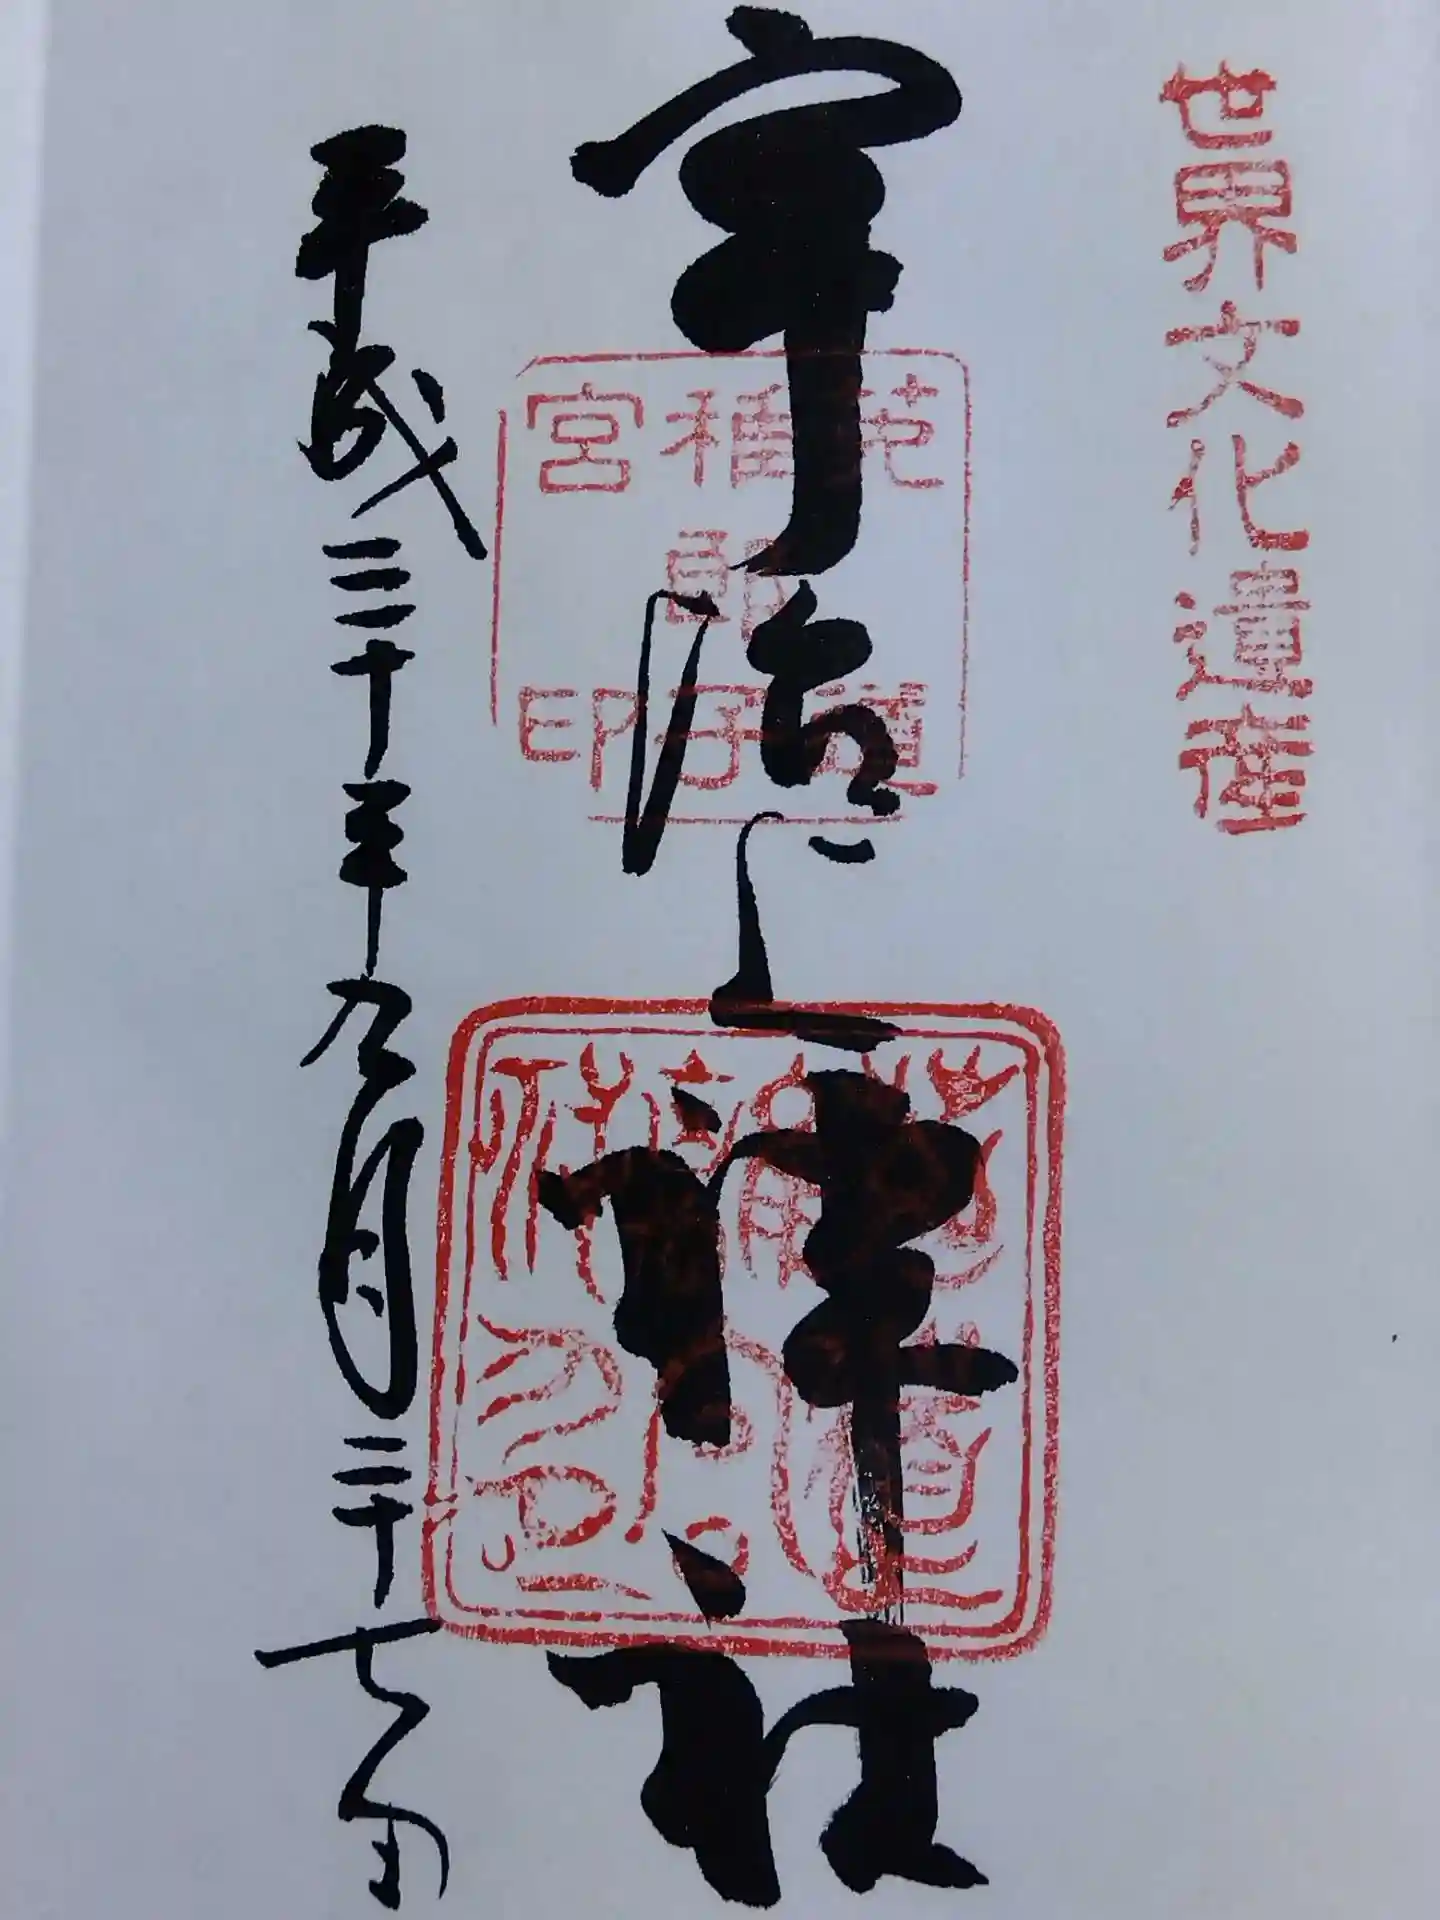 世界文化遺産
宇治上神社
菟道
稚郎子
宮印
平成三十年九月二十七日